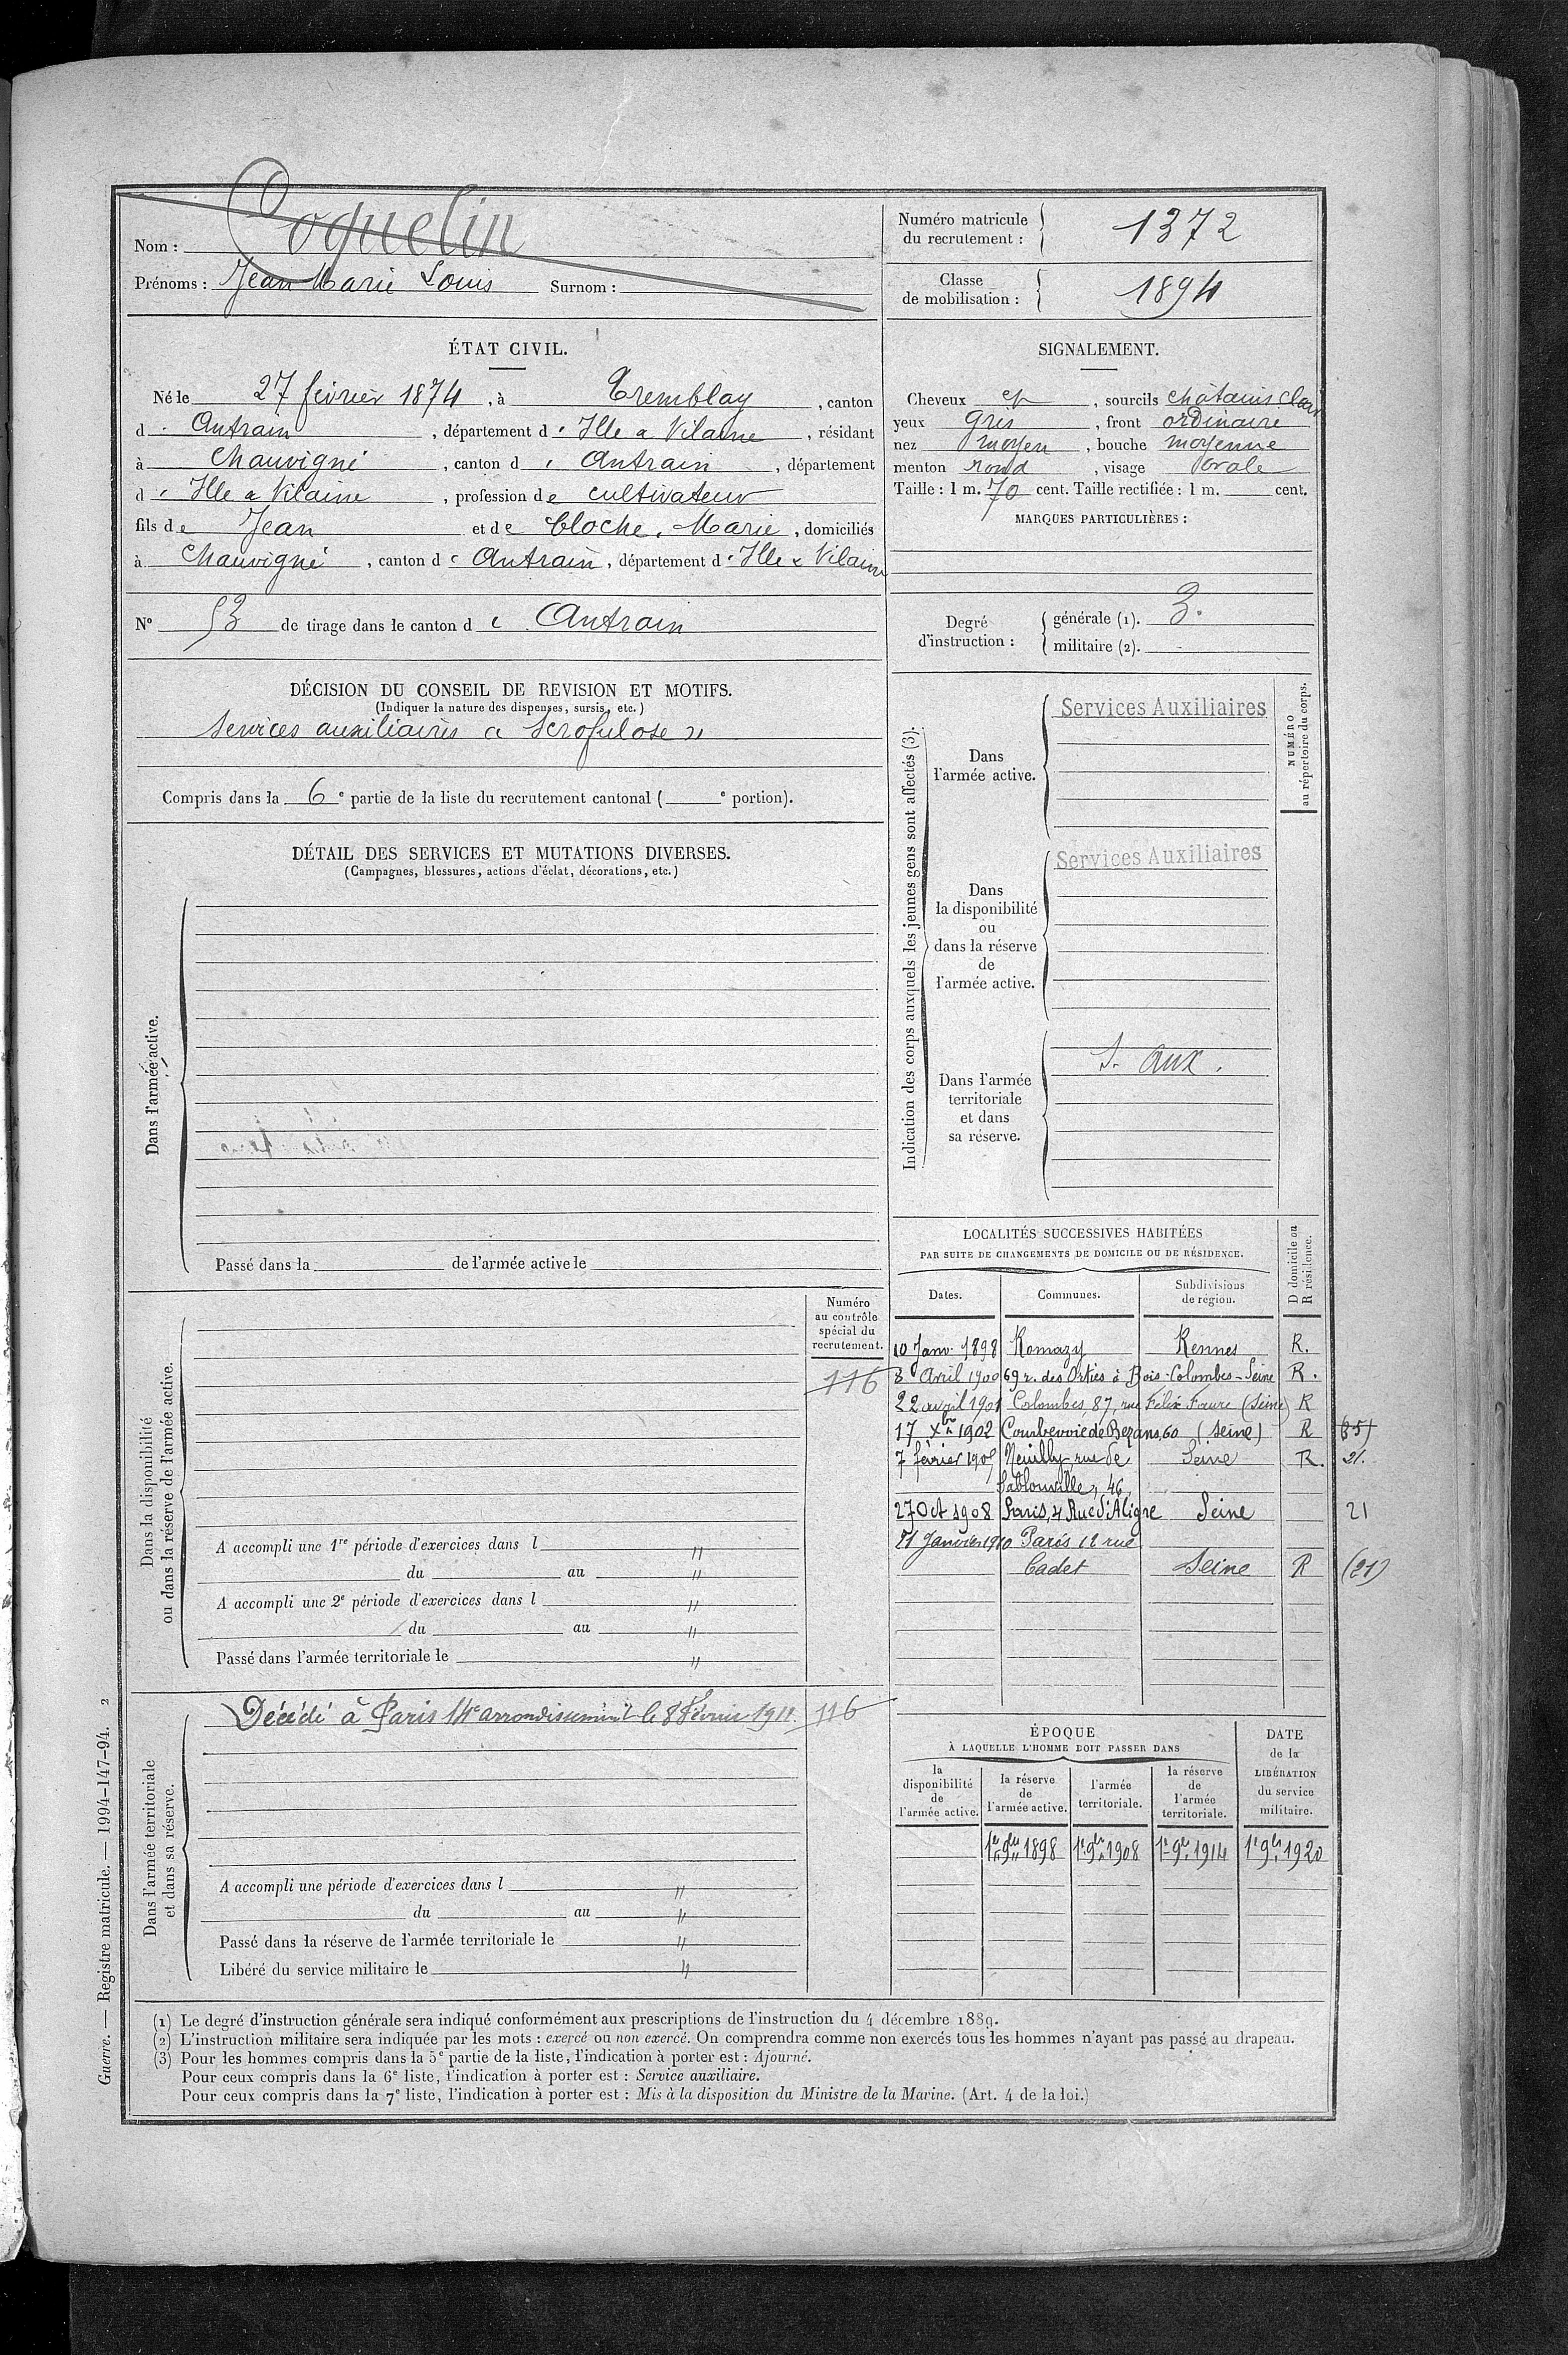 Nom : Coquelin
Prénoms : Jean Marie Louis Surnom :
Numéro matricule du recrutement : 1372
Classe de mobilisation : 1894
ÉTAT CIVIL.
Né le 27 février 1874, à Tremblay, canton
d' Antrain, département d' Ille & Vilaine, résidant
à Chauvigné, canton d' Antrain, département
d' Ille & Vilaine, profession de cultivateur
fils de Jean et de Cloche, Marie, domiciliés
à Chauvigné, canton d' Antrain, département d' Ille & Vilaine
N° 53 de tirage dans le canton d' Antrain
SIGNALEMENT.
Cheveux et, sourcils châtains clairs
yeux gris, front ordinaire
nez moyen, bouche moyenne
menton rond, visage ovale
Taille : 1 m. 70 cent. Taille rectifiée : 1 m. cent.
MARQUES PARTICULIÈRES :
Degré d'instruction :
générale (1). 3.
militaire (2).
DÉCISION DU CONSEIL DE REVISION ET MOTIFS.
(Indiquer la nature des dispenses, sursis, etc.)
Services auxiliaires « Scrofulose »
Compris dans la 6e partie de la liste du recrutement cantonal ( e portion).
DÉTAIL DES SERVICES ET MUTATIONS DIVERSES.
(Campagnes, blessures, actions d'éclat, décorations, etc.)
Dans l'armée active.
Passé dans la de l'armée active le
Indication des corps auxquels les jeunes gens sont affectés (3).
NUMÉRO
au répertoire du corps.
Dans
l'armée active.
Services Auxiliaires
Dans
la disponibilité
ou
dans la réserve
de
l'armée active.
Services Auxiliaires
Dans l'armée
territoriale
et dans
sa réserve.
S. aux.
Dans la disponibilité
ou dans la réserve de l'armée active.
Numéro
au contrôle
spécial du
recrutement.
116
A accompli une 1re période d'exercices dans l "
du au "
A accompli une 2e période d'exercices dans l "
du au "
Passé dans l'armée territoriale le "
LOCALITÉS SUCCESSIVES HABITÉES
PAR SUITE DE CHANGEMENTS DE DOMICILE OU DE RÉSIDENCE.
Dates. Communes. Subdivisions de région. D domicile ou R résidence.
10 Janv. 1898 Romazy Rennes R.
8 Avril 1900 69 r. des Orties à Bois-Colombes-Seine R.
22 avril 1901 Colombes, 87, rue Félix Faure (Seine) R
17 Xbre 1902 Courbevoie de Bezons, 60 (Seine) R
7 février 1905 Neuilly rue de Seine R. 21.
Sablonville, 46,
27 Oct 1908 Paris, 4 Rue d'Aligre Seine 21
Janvier 1910 Paris 12 rue
Cadet Seine R (21)
Dans l'armée territoriale
et dans sa réserve.
Décédé à Paris 14e arrondissement le 8 Février 1911. 116
A accompli une période d'exercices dans l "
du au "
Passé dans la réserve de l'armée territoriale le "
Libéré du service militaire le "
ÉPOQUE
À LAQUELLE L'HOMME DOIT PASSER DANS
la disponibilité de l'armée active.
la réserve de l'armée active.
l'armée territoriale.
la réserve de l'armée territoriale.
DATE de la LIBÉRATION du service militaire.
1er 9bre 1898 1er 9bre 1908 1er 9bre 1914 1er 9bre 1920
(1) Le degré d'instruction générale sera indiqué conformément aux prescriptions de l'instruction du 4 décembre 1889.
(2) L'instruction militaire sera indiquée par les mots : exercé ou non exercé. On comprendra comme non exercés tous les hommes n'ayant pas passé au drapeau.
(3) Pour les hommes compris dans la 5e partie de la liste, l'indication à porter est : Ajourné.
Pour ceux compris dans la 6e liste, l'indication à porter est : Service auxiliaire.
Pour ceux compris dans la 7e liste, l'indication à porter est : Mis à la disposition du Ministre de la Marine. (Art. 4 de la loi.)
Guerre. — Registre matricule. — 1994-147-94. 2